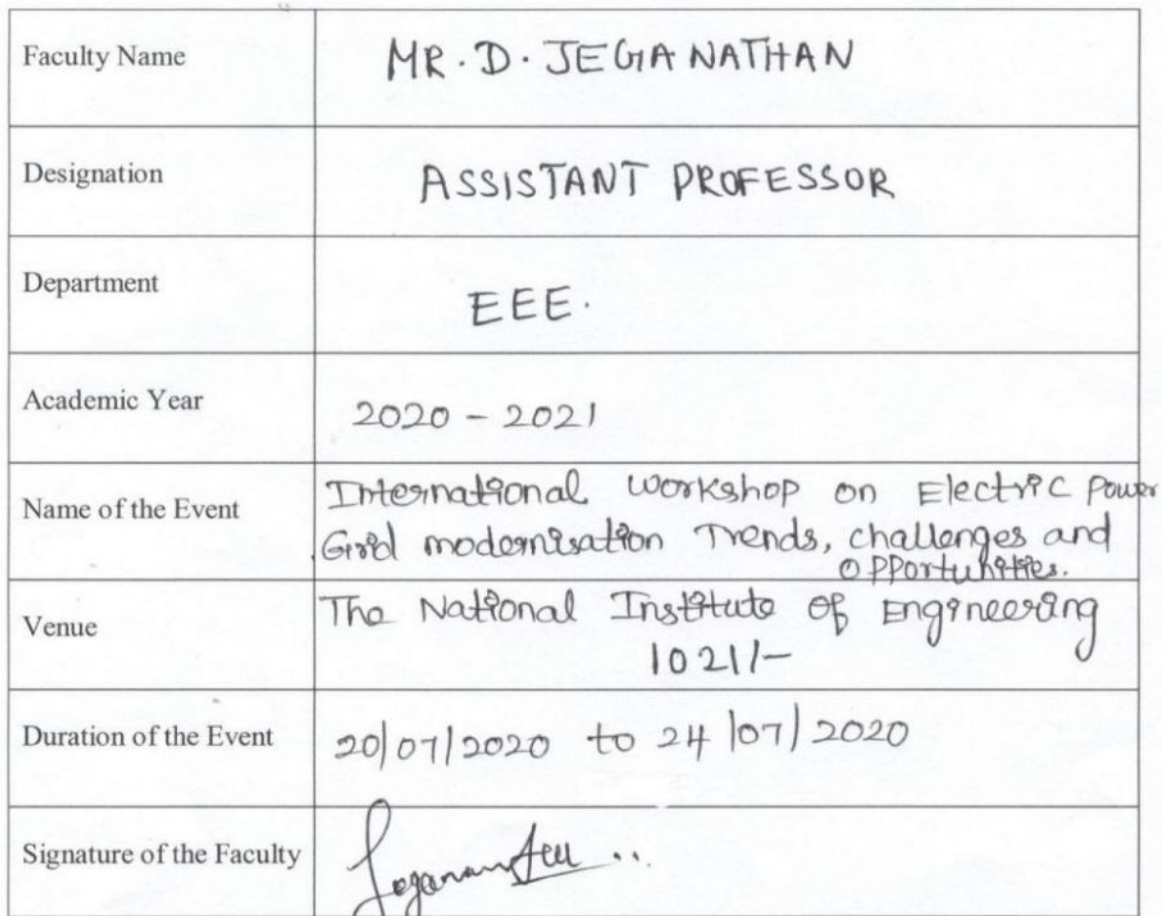 Faculty Name
MR. D. JEGANATHAN
Designation
ASSISTANT PROFESSOR
Department
EEE.
Academic Year
2020 - 2021
Name of the Event
International workshop on Electric Power
Grid modernisation Trends, challenges and
opportunities.
Venue
The National Institute of Engineering
1021/-
Duration of the Event
20/07/2020 to 24/07/2020
Signature of the Faculty